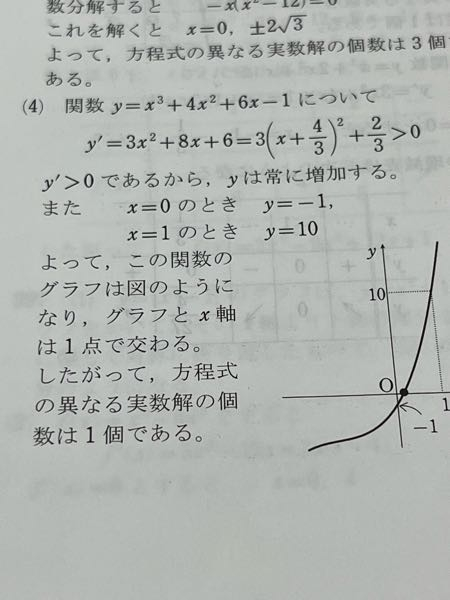 数分解すると　−x(x²−12)=0
これを解くと　x=0, ±2√3
よって，方程式の異なる実数解の個数は3個
ある。
(4)　関数 y=x³+4x²+6x−1 について
y′=3x²+8x+6=3(x+4/3)²+2/3>0
y′>0 であるから，yは常に増加する。
また　x=0 のとき　y=−1,
x=1 のとき　y=10
よって，この関数の
グラフは図のように
なり，グラフと x 軸
は1点で交わる。
したがって，方程式
の異なる実数解の個
数は1個である。
y
10
O
1
−1